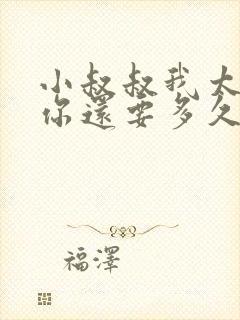 小叔叔我大
你還要多久
福澤